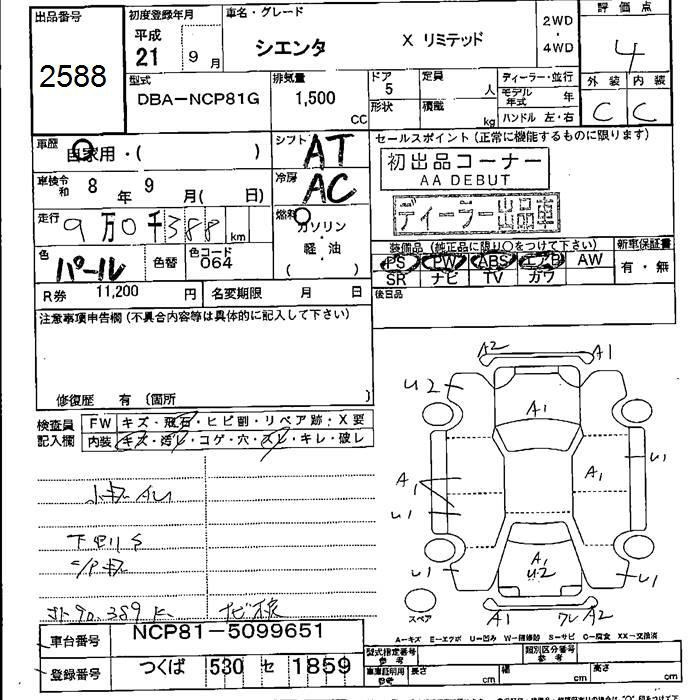 出品番号 初度登録年月 車名・グレード 2WD・4WD 評価点
2588 平成 21 9 月 シエンタ X リミテッド 4
型式 DBA-NCP81G 排気量 1,500 CC ドア 5 定員 人 ディーラー・並行 外装 内装
形状 積載 kg モデル年式 年 C C
ハンドル 左・右
車歴 自家用・( ) シフト AT セールスポイント (正常に機能するものに限ります)
車検令和 8 年 9 月( 日) 冷房 AC 初出品コーナー
AA DEBUT
走行 9万0千388 km 燃料 ガソリン ディーラー出品車
軽・油
( )
色 パール 色替 色コード 064 装備品 (純正品に限り○をつけて下さい) 新車保証書
PS PW ABS エアB AW 有・無
SR ナビ TV カワ
R券 11,200 円 名変期限 月 日 後日品
注意事項申告欄 (不具合内容等は具体的に記入して下さい)
修復歴 有 (箇所 )
検査員記入欄 FW キズ・飛石・ヒビ割・リペア跡・X要
内装 キズ・汚レ・コゲ・穴・スレ・キレ・破レ
A2 A1
U2
A1
A1 A1 U1
U1
A1
U2
U1 U1
スペア A1 ワレ A2
下回りS
A-キズ E-エクボ U-凹み W-補修跡 S-サビ C-腐食 XX-交換済
車台番号 NCP81-5099651
型式指定番号 参考 類別区分番号 参考
登録番号 つくば 530 セ 1859
車庫証明用 参考 長さ cm 幅 cm 高さ cm